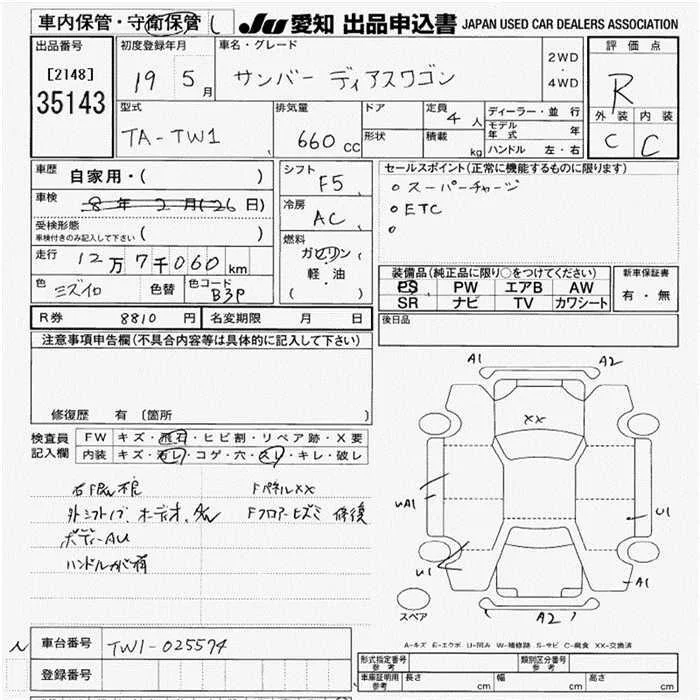 車内保管・守衛保管 JU 愛知 出品申込書 JAPAN USED CAR DEALERS ASSOCIATION
出品番号
[2148]
35143
初度登録年月
19 5月
車名・グレード
サンバー ディアスワゴン
2WD
・
4WD
評価点
R
外装 内装
C C
型式
TA-TW1
排気量
660 cc
ドア
形状
定員 4 人
積載 kg
ディーラー・並行
モデル年式 年
ハンドル 左・右
車歴 自家用・( )
車検 8年 2月(26日)
受検形態
車検付きのみ記入して下さい ( )
走行 12万7千060km
色 ミズイロ 色替 色コード B3P
シフト F5
冷房 AC
燃料
ガソリン
・
軽油
( )
セールスポイント(正常に機能するものに限ります)
○ スーパーチャージ
○ ETC
○
装備品(純正品に限り○をつけてください)
PS PW エアB AW
SR ナビ TV カワシート
新車保証書
有・無
R券 8810 円 名変期限 月 日
後日品
注意事項申告欄(不具合内容等は具体的に記入して下さい)
修復歴 有 [箇所 ]
検査員記入欄
FW キズ・飛石・ヒビ割・リペア跡・X要
内装 キズ・汚レ・コゲ・穴・スレ・キレ・破レ
FパネルXX
外シフトノブ、オーディオ、
Fフロアーヒズミ 修復
ボディーAU
A1 A2
XX
UA1
U1
U1
A1
A2
スペア
A-キズ E-エクボ U-凹み W-補修跡 S-サビ C-腐食 XX-交換済
車台番号 TW1-025574
登録番号
型式指定番号 参考
類別区分番号 参考
車庫証明用 参考 長さ cm 幅 cm 高さ cm